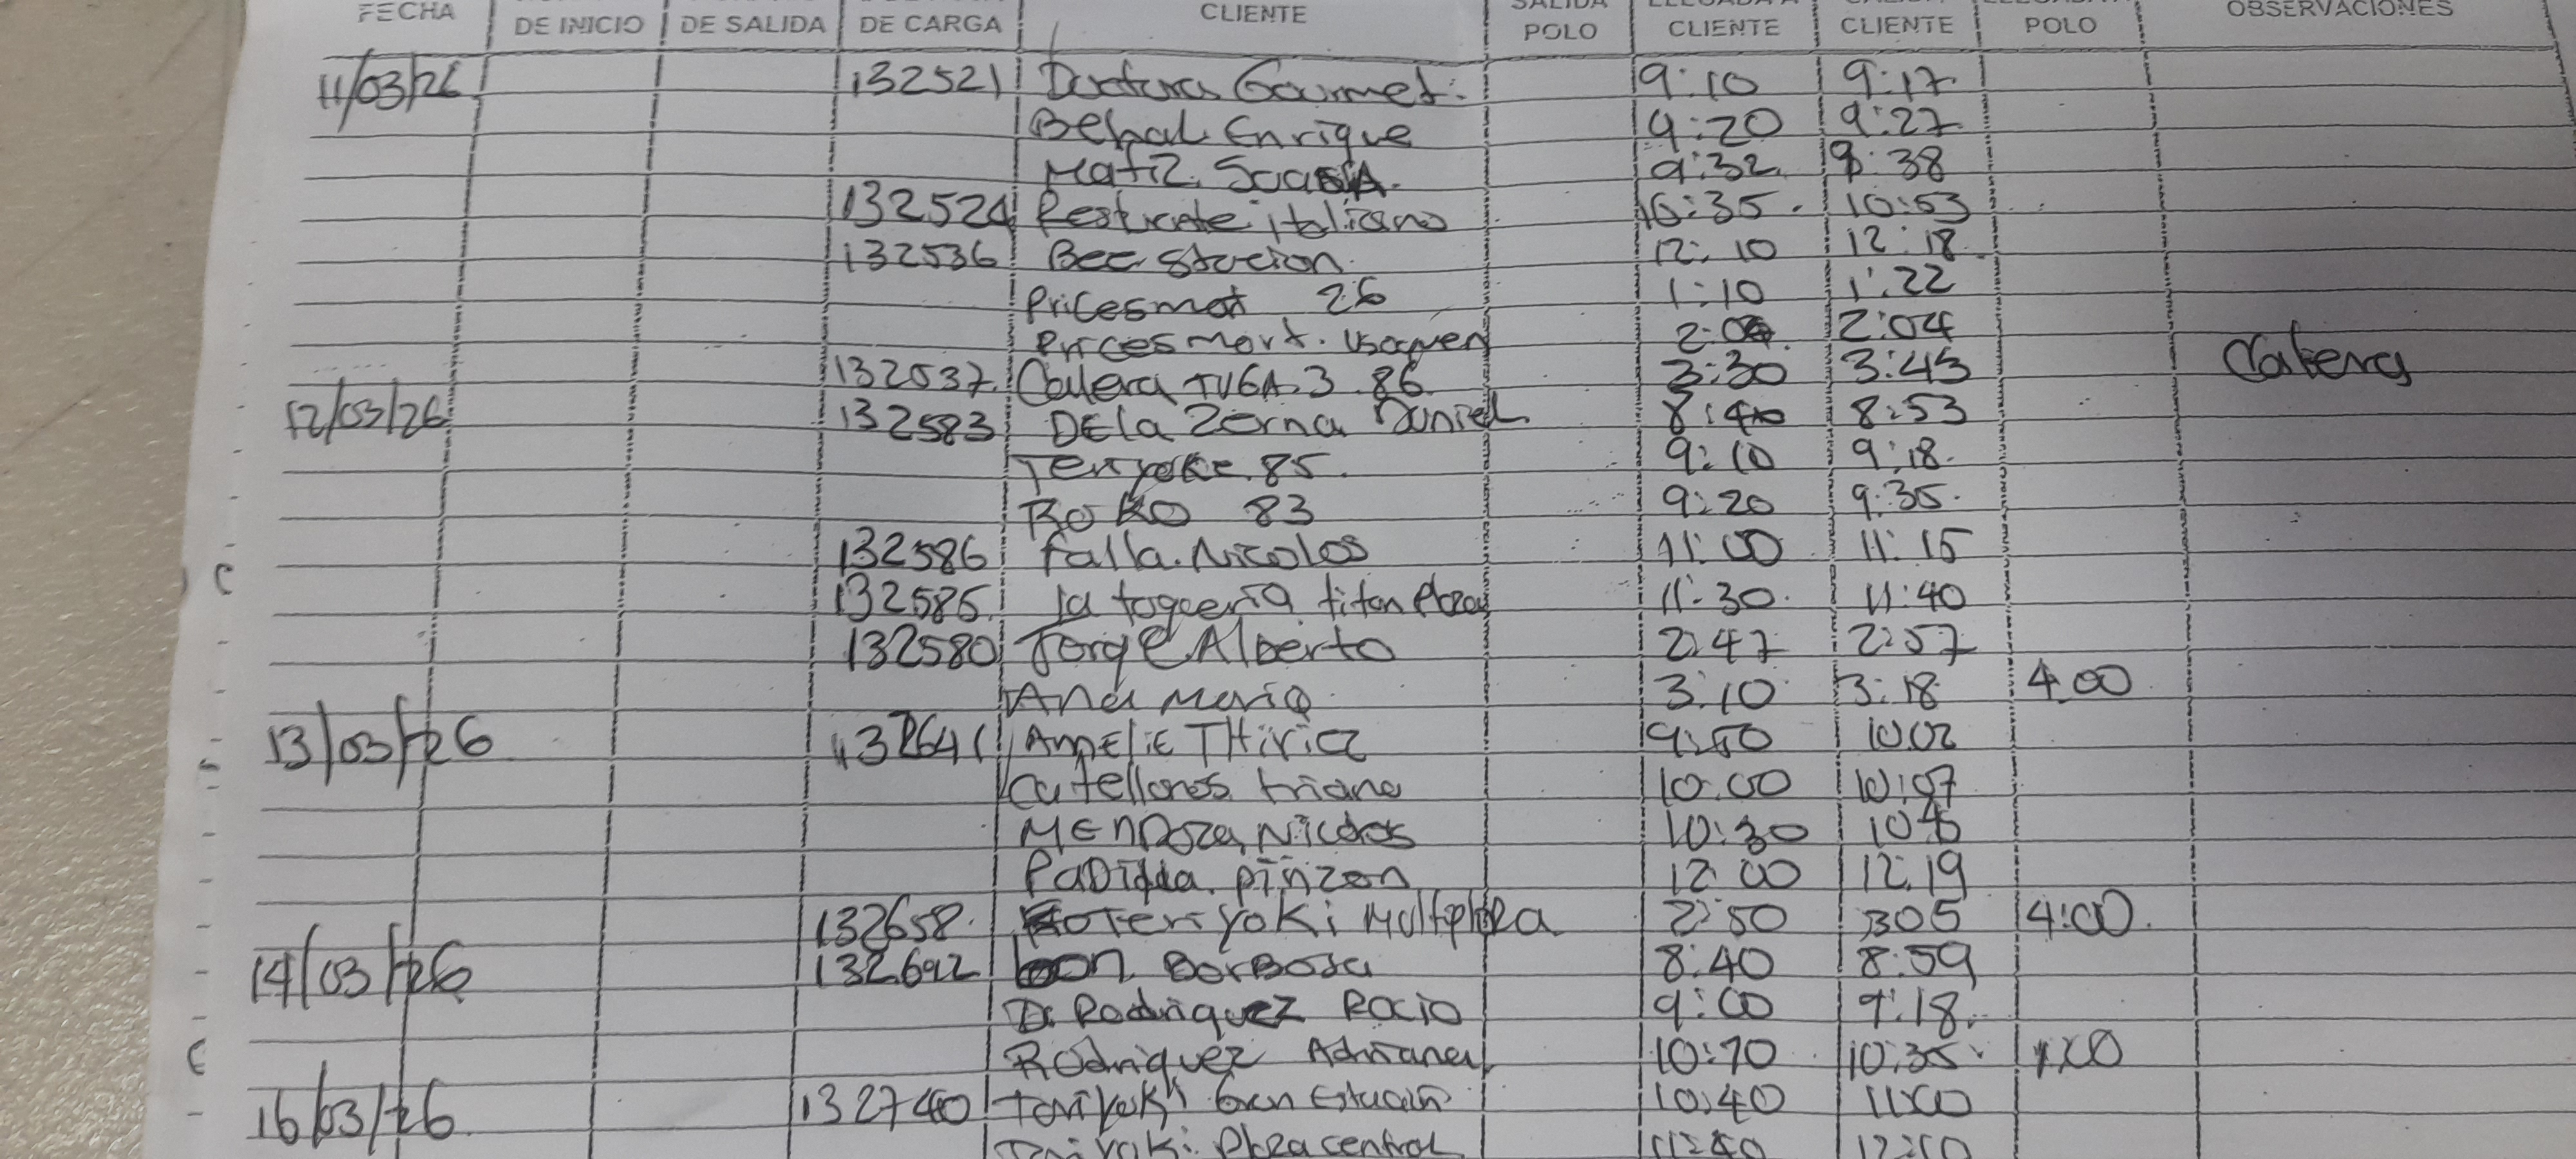 FECHA DE INICIO DE SALIDA DE CARGA CLIENTE SALIDA POLO CLIENTE CLIENTE POLO OBSERVACIONES
11/03/26 132521 Gourmet. 9:10 9:17
Enrique 9:20 9:27
9:32 9:38
132524 italiano 10:35 10:53
132536 Bec Stacion 12:10 12:18
Pricesmat 26 1:10 1:22
Pricesmart. Usaquen 2:04
132537 Calera 3 86 3:30 3:45 Calera
12/03/26 132583 DE la Zerna Daniel 8:40 8:53
Teriyoke 85. 9:10 9:18
KOKO 83 9:20 9:35
132586 Falla. Nicolos 11:00 11:15
132585 la taqueria titan Plaza 11:30 11:40
132580 Jorge Alberto 2:47 2:57
Ana Maria 3:10 3:18 4:00
13/03/26 132641 AMELIE THiria 9:50 10:02
triana 10:00 10:07
MENDOZA, Nicolos 10:30
Padilla. pinzon 12:00 12:19
132658 teriyoki Multiplaza 2:50 305 4:00
14/03/26 132692 Borbosa 8:40 8:59
Rodriguez Rocio 9:00 9:18
Rodriguez Adriana 10:35
16/03/26 132740 Gran Estación 10:40 11:00
Plaza central